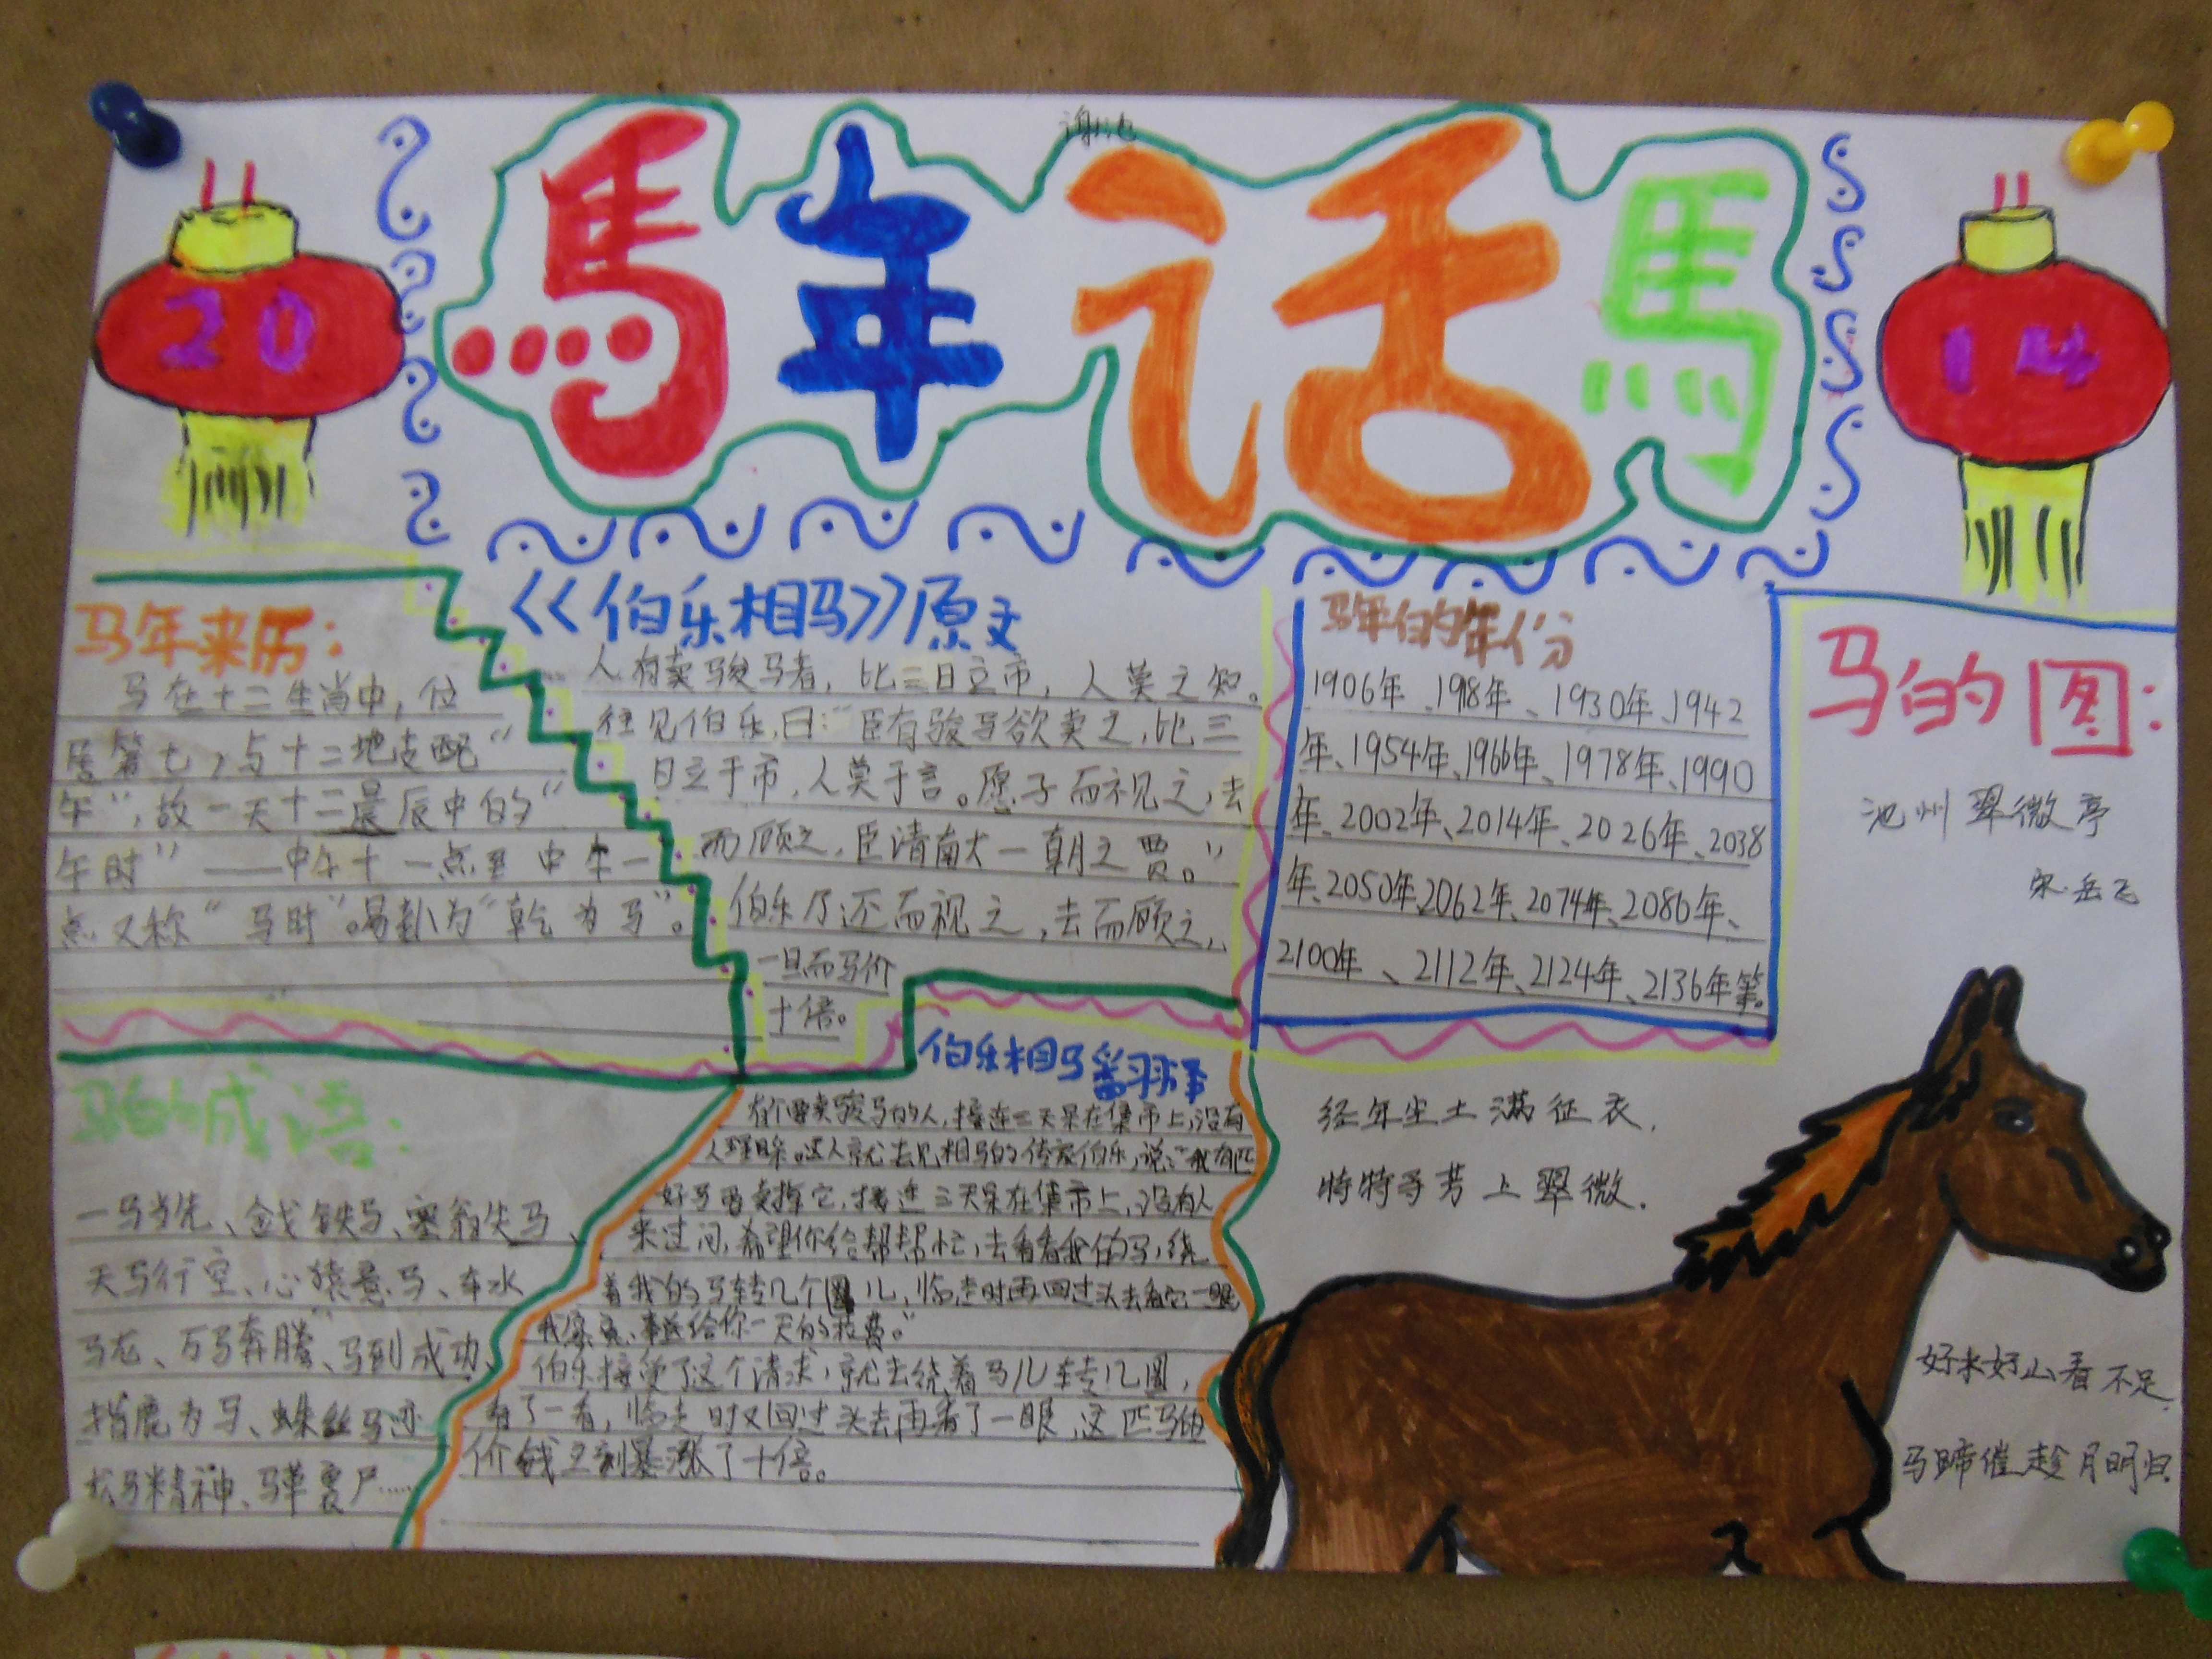 谢池
馬年话馬
20
14
马年来历：
马在十二生肖中，位
居第七，与十二地支配“
午”，故一天十二晨辰中的“
午时”——中午十一点至中午一
点又称“马时”。易卦为“乾为马”。
《伯乐相马》原文
人有卖骏马者，比三日立市，人莫之知。
往见伯乐，曰：“臣有骏马欲卖之，比三
日立于市，人莫于言。愿子而视之，去
而顾之，臣请献一朝之贾。”
伯乐乃还而视之，去而顾之，
一旦而马价
十倍。
马年的年份
1906年、1918年、1930年、1942
年、1954年、1966年、1978年、1990
年、2002年、2014年、2026年、2038
年、2050年、2062年、2074年、2086年、
2100年、2112年、2124年、2136年等。
马的图：
池州翠微亭
宋·岳飞
经年尘土满征衣，
特特寻芳上翠微。
好水好山看不足，
马蹄催趁月明归。
马的成语：
一马当先、金戈铁马、塞翁失马、
天马行空、心猿意马、车水
马龙、万马奔腾、马到成功、
指鹿为马、蛛丝马迹
龙马精神、马革裹尸……
伯乐相马翻译
有个要卖骏马的人，接连三天呆在集市上，没有
人理睬。这人就去见相马的传家伯乐，说：“我有匹
好马要卖掉它，接连三天呆在集市上，没有人
来过问，希望你给帮帮忙，去看看我的马，绕
着我的马转几个圈儿，临走时再回过头去看它一眼
我愿意奉送给你一天的花费。”
伯乐接受了这个请求，就去绕着马儿转几圈，
看了一看，临走时又回过头去再看了一眼，这匹马的
价钱立刻暴涨了十倍。